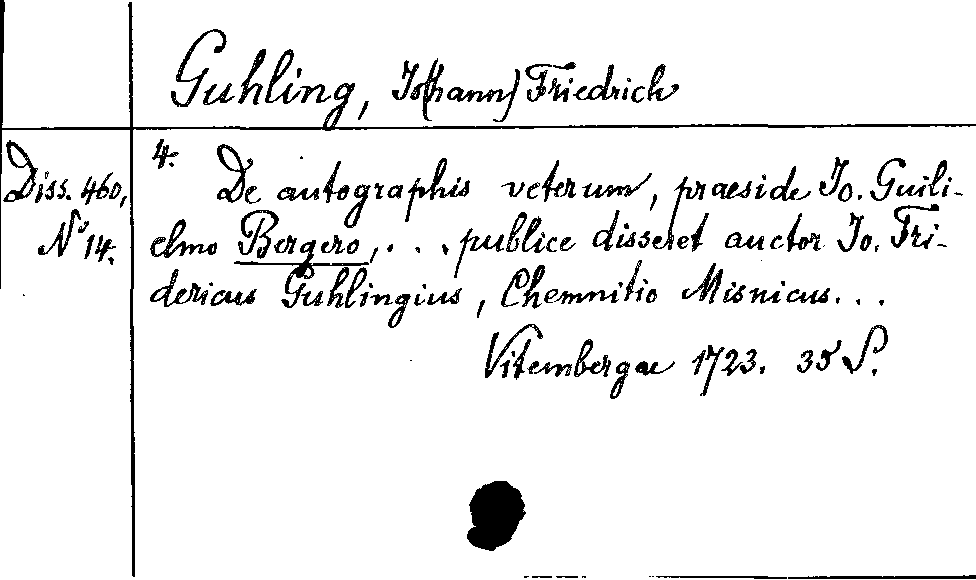 Guhling, Jo(hann) Friedrich
Diss. 460,
No 14.
4. De autographis veterum, praeside Jo. Guili-
elmo Bergero, . . . publice disseret auctor Jo. Fri-
dericus Guhlingius, Chemnitio Misnicus. . .
Vitembergae 1723. 35 S.